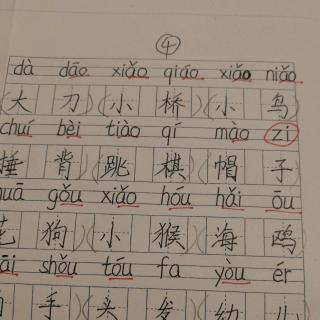 ④
dà dāo xiǎo qiáo xiǎo niǎo
(大 刀)(小 桥)(小 鸟
chuí bèi tiào qí mào zi
捶 背)(跳 棋)(帽 子
huā gǒu xiǎo hóu hǎi ōu
花 狗)(小 猴)(海 鸥
āi shǒu tóu fa yòu ér
手)(头 发)(幼 儿